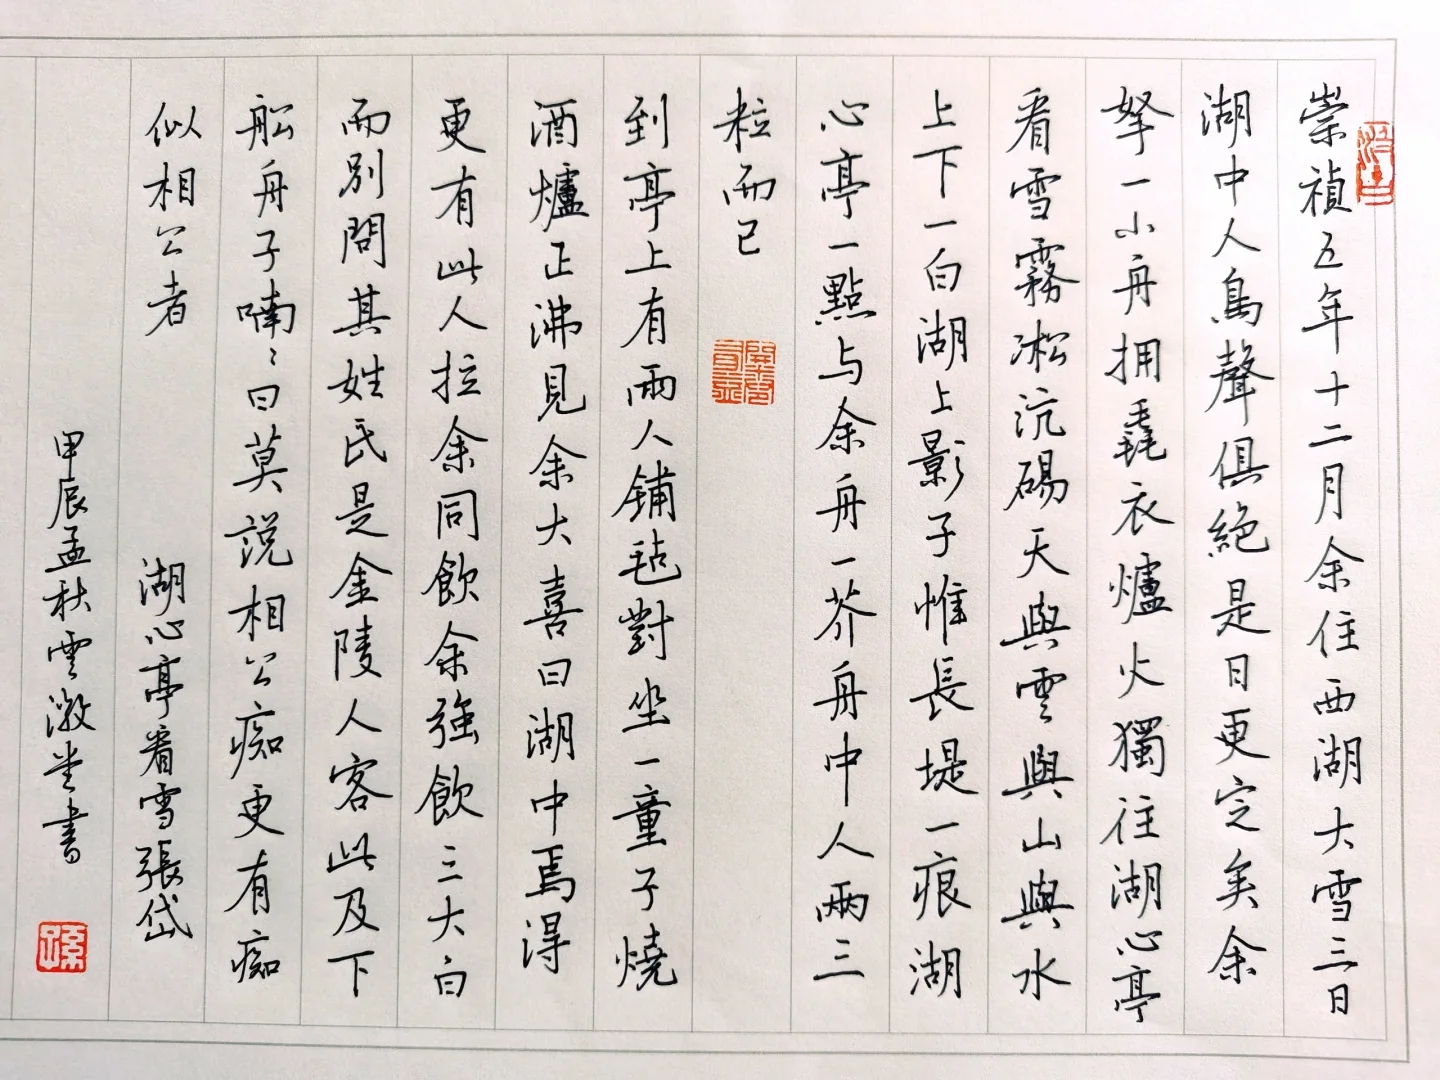 崇禎五年十二月余住西湖大雪三日
湖中人鳥聲俱絕是日更定矣余
拏一小舟拥毳衣爐火獨往湖心亭
看雪霧凇沆碭天與雲與山與水
上下一白湖上影子惟長堤一痕湖
心亭一點与余舟一芥舟中人兩三
粒而已
到亭上有兩人鋪毡對坐一童子燒
酒爐正沸見余大喜曰湖中焉得
更有此人拉余同飲余強飲三大白
而別問其姓氏是金陵人客此及下
舩舟子喃〻曰莫說相公痴更有痴
似相公者
湖心亭看雪張岱
甲辰孟秋雲澂堂書